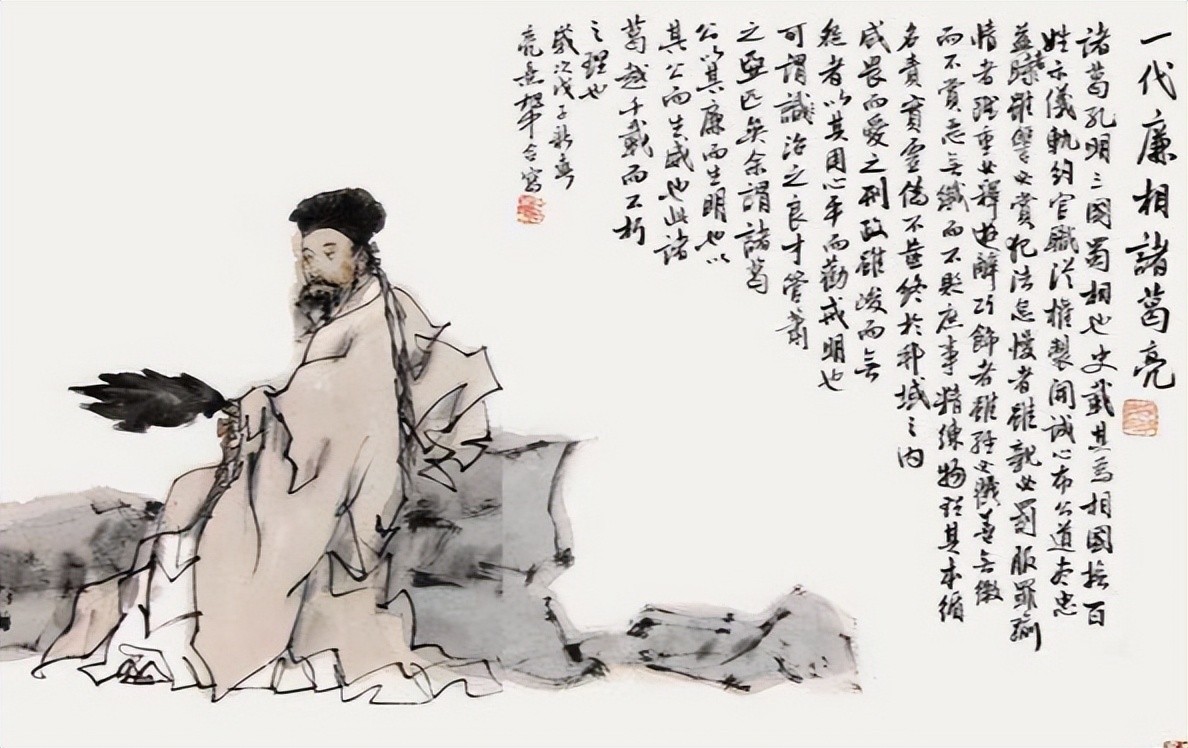 一代廉相諸葛亮
諸葛孔明三國蜀相也史載其為相國撫百
姓示儀軌約官職從權製開誠心布公道盡忠
益時者雖讐必賞犯法怠慢者雖親必罰服罪輸
情者雖重必釋遊辭巧飾者雖輕必戮善無微
而不賞惡無纖而不貶庶事精練物理其本循
名責實虛偽不齒終於邦域之內
咸畏而愛之刑政雖峻而無
怨者以其用心平而勸戒明也
可謂識治之良才管蕭
之亞匹矣余謂諸葛
公以其廉而生明也以
其公而生威也此諸
葛越千載而不朽
之理也
歲次戊子新春